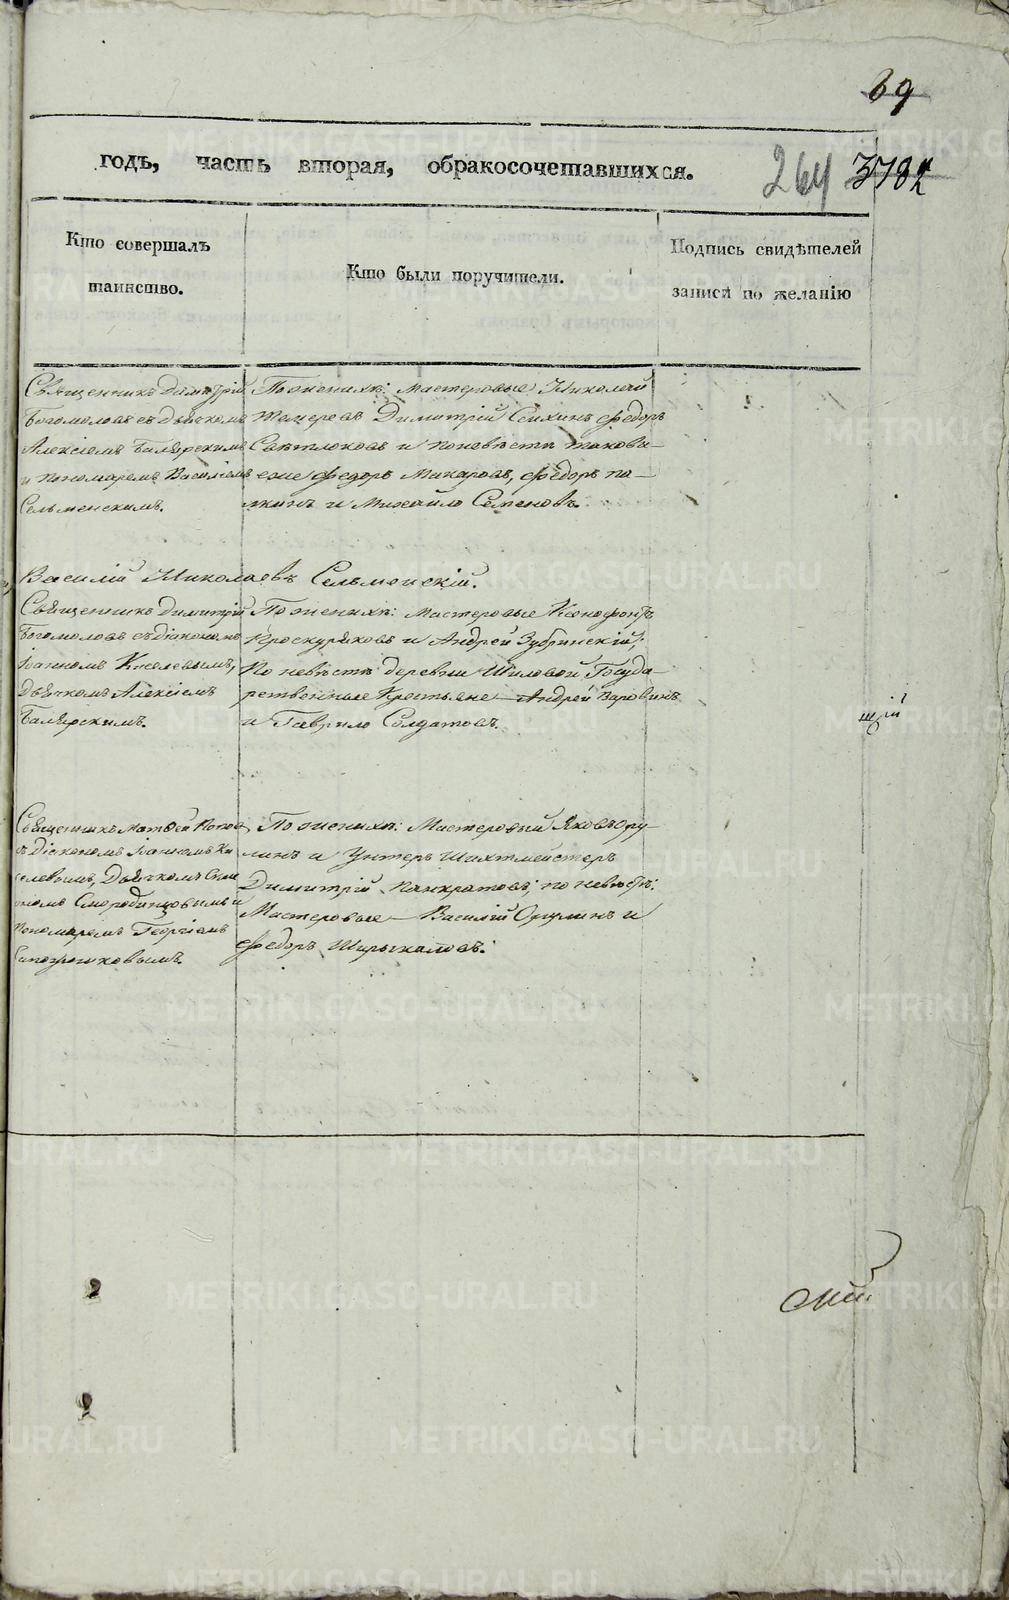 69
годъ, часть вторая, обракосочетавшихся.
264 3782
Кто совершалъ
таинство.
Кто были поручители.
Подпись свидѣтелей
записи по желанію
Священникъ Димитрій
Богомоловъ съ Дьячкомъ
Алексіемъ
и пономаремъ Василіемъ
Сельменскимъ.
По женихѣ: Мастеровые Николай
Димитрій Сихинъ Федоръ
Свѣтлоковъ и по невѣстѣ такови-
еже Федоръ Макаровъ, Федоръ По-
и Михайло Семеновъ.
Василій Николаевъ Сельменскій.
Священникъ Димитрій
Богомоловъ съ діакономъ
Іоанномъ Киселевымъ,
Дьячкомъ Алексіемъ
По женихѣ: Мастеровые Ксенофонтъ
Проскуряковъ и Андрей Зубринскій;
По невѣстѣ деревни Шиловой Госуда-
рственные Крестьяне Андрей Воровинъ
и Гаврило Солдатовъ.
щій
Священникъ Матѳей Попов
съ Діакономъ Іоанномъ Ки
селевымъ, Дьячкомъ Симе
ономъ Смородинцовымъ и
Пономаремъ Георгіемъ
Сапожниковымъ.
По женихѣ: Мастеровый Яковъ Ору-
линъ и Унтеръ Шихтмейстеръ
Димитрій Панкратовъ; по невѣстѣ:
Мастеровые Василій Орулинъ и
Федоръ Ширыкаловъ.
скій
METRIKI.GASO-URAL.RU